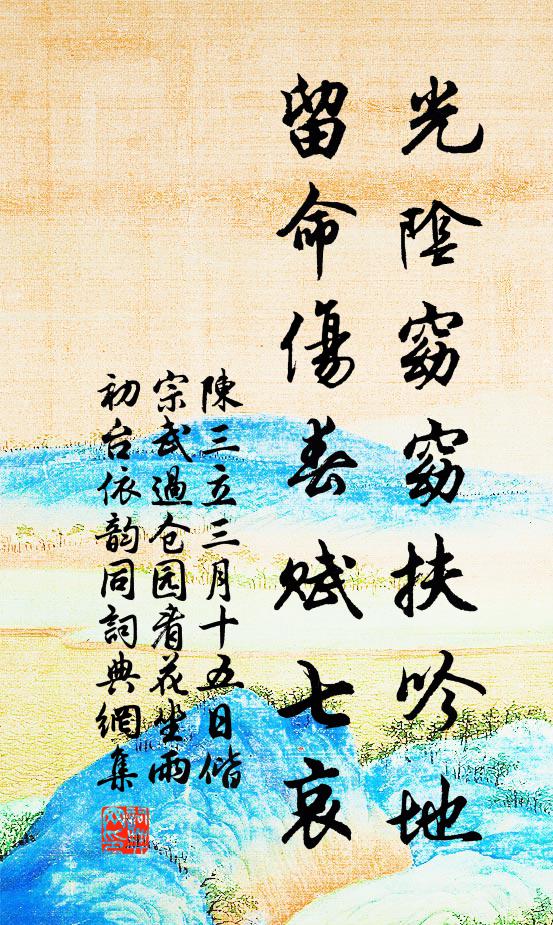 光陰窈窈扶吟地
留命傷春賦七哀
陳三立三月十五日偕
宗武過仓园看花坐雨
初台依韵同詞典網集